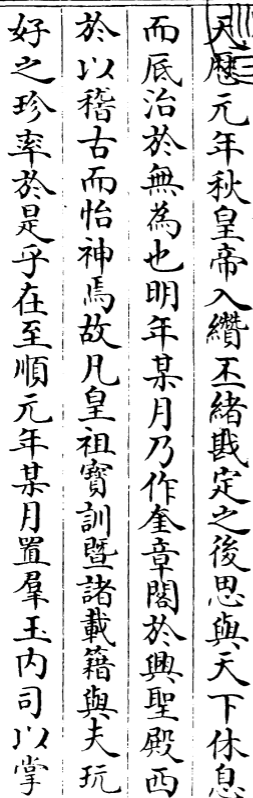 天曆元年秋皇帝入纘丕緒戡定之後思與天下休息
而底治於無為也明年某月乃作奎章閣於興聖殿西
於以稽古而怡神焉故凡皇祖寶訓暨諸載籍與夫玩
好之珍率於是乎在至順元年某月置羣玉內司以掌